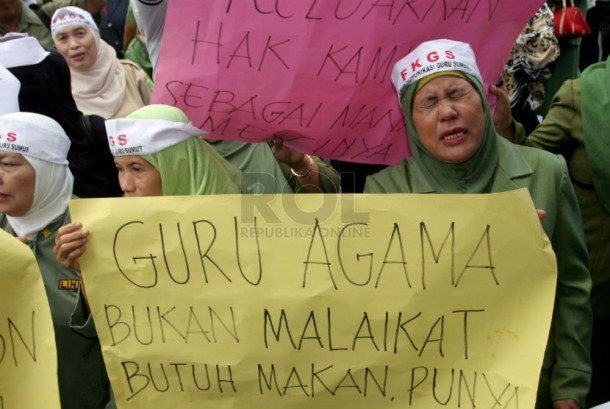 KELUARKAN
HAK KAMI
SEBAGAI MANA
MESTINYA
FKGS
GURU SUMUT
FKGS
FKGS
KOMUNIKASI GURU SUMUT
ROL
REPUBLIKA ONLINE
GURU AGAMA
BUKAN MALAIKAT
BUTUH MAKAN, PUNYA
ON